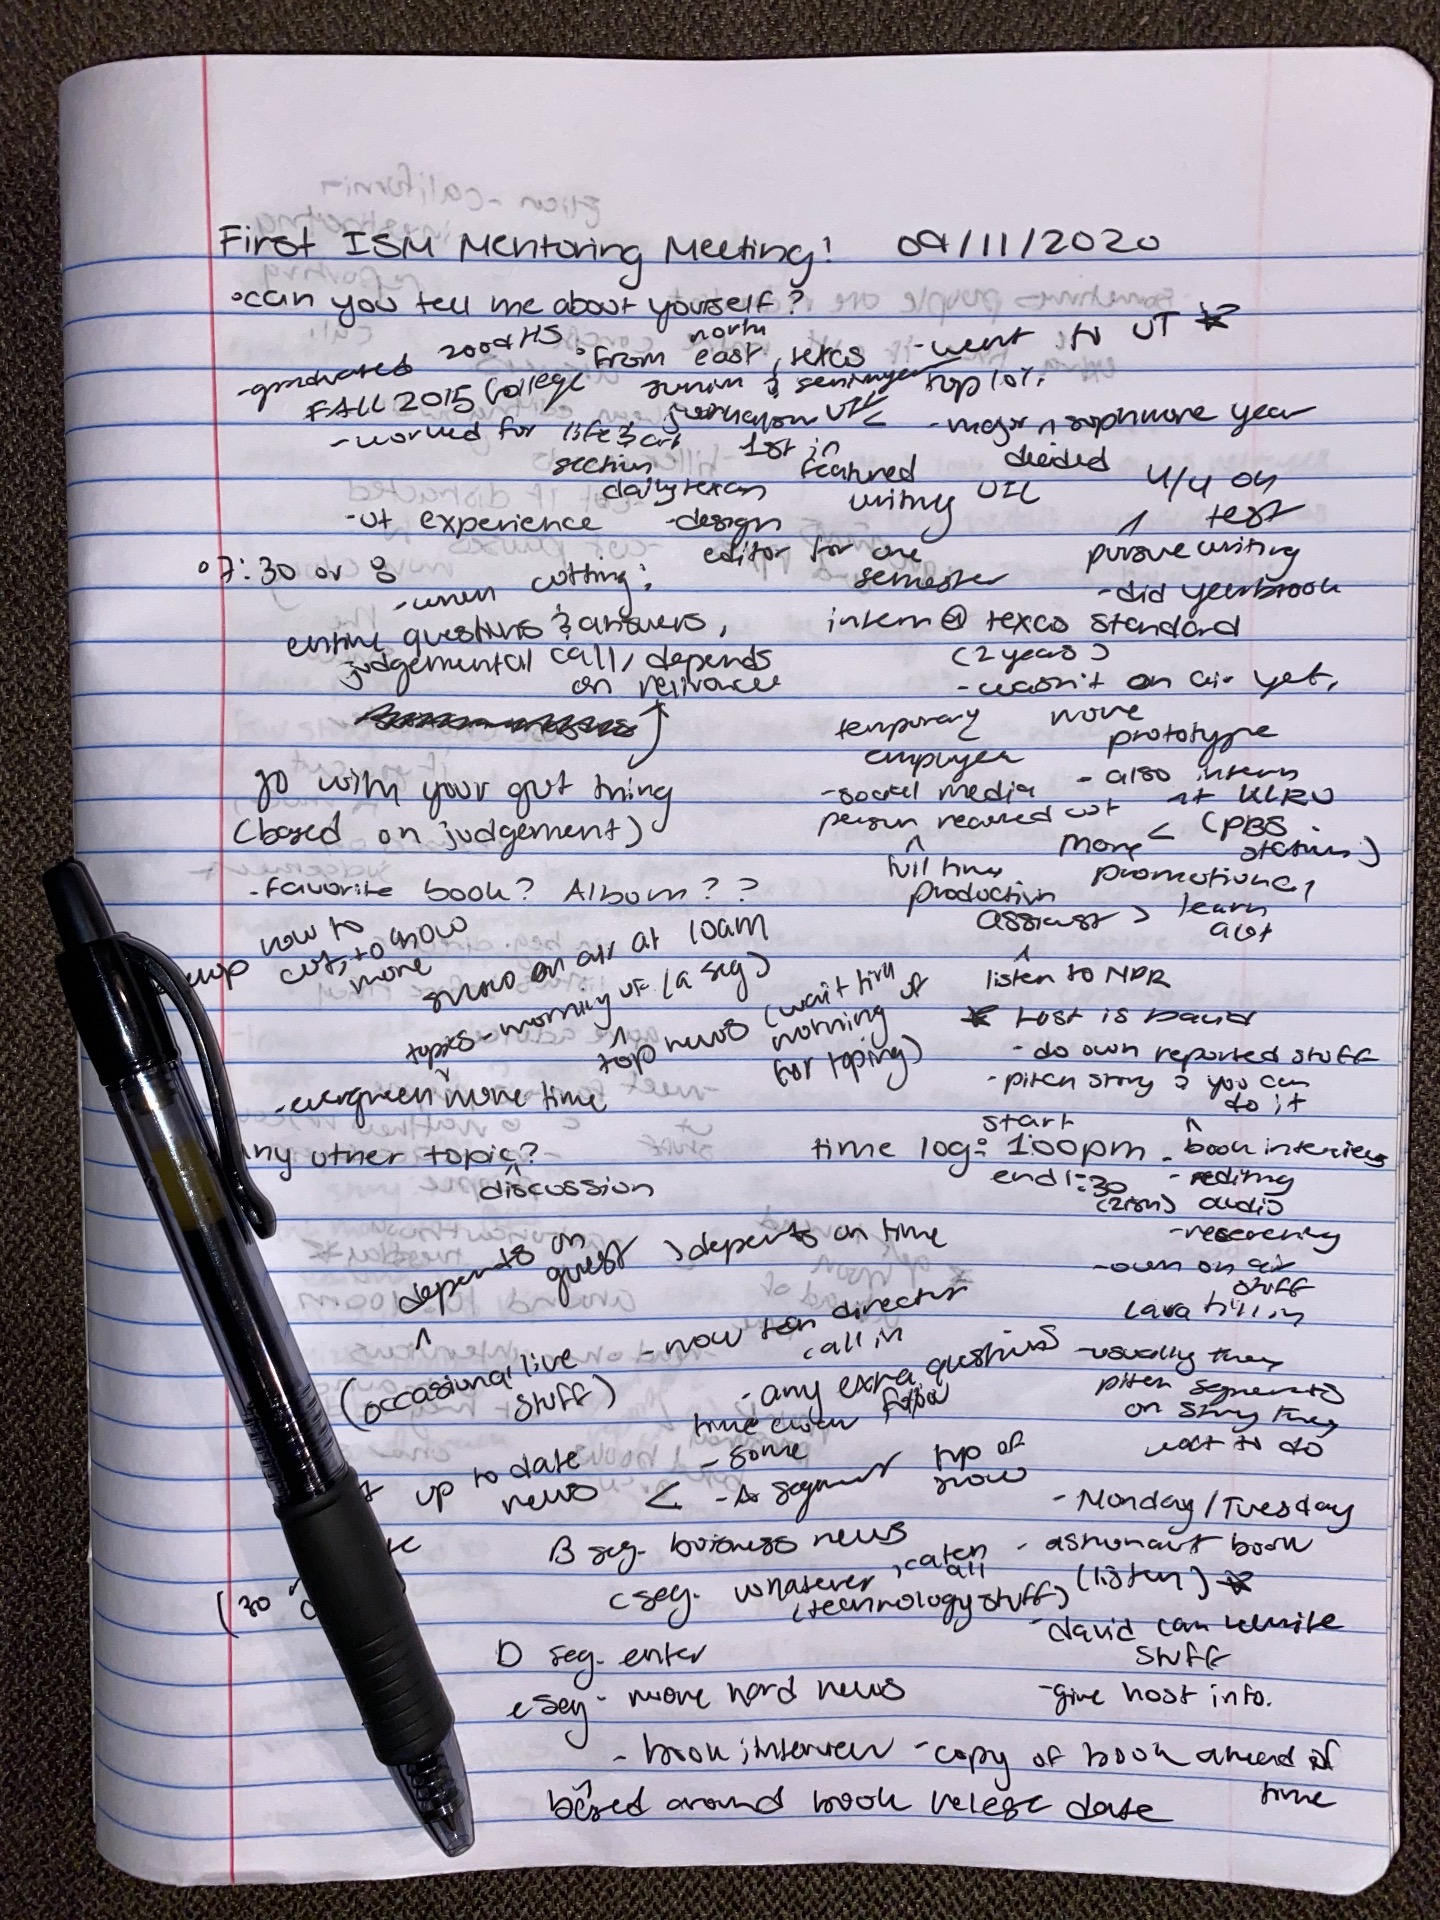 First ISM Mentoring Meeting! 09/11/2020
•can you tell me about yourself?
-graduated 2009 HS
FALL 2015 College
•from north east, texas
-went to UT
junior & senior year
top 10%
-worked for life & art
section
daily texan
1st in
featured
writing UIL
-major n sophmore year
decided
4/4 on
test
pursue writing
-did yearbook
-ut experience
-design
editor for one
semester
•7:30 or 8
-when cutting:
entire questions & answers,
judgemental call, depends
on relivance
go with your gut thing
(based on judgement)
-Favorite book? Album??
how to
cut, to know
more
show on air at 10am
topics-morning of (a seg)
top news (wait till
morning of
for toping)
-evergreen more time
any other topic?
discussion
depends on
guest
depends on time
(occassional live
stuff)
-now ten director
call in
-any extra questions
time
up to date
news <
-some
-A segment top of
show
B seg. buisness news
C seg. whatever, catch
all
(technology stuff)
(30
D seg. enter
e seg- more hard news
-book interview -copy of book ahead of
time
based around book release date
intern @ texas standard
(2 years)
-wasn't on air yet,
more
prototype
temporary
employee
-also intern
at KLRU
(PBS
station)
-social media
person
more
promotional
full time
production
assisst > learn
abt
listen to NPR
host is David
-do own reported stuff
-pitch story & you can
do it
start
time log: 1:00pm
end 1:30
-book interviews
-editing
audio
-researching
-own on air
stuff
-usually they
pitch segments
on story they
want to do
-Monday/Tuesday
-astronaut book
(listen)
-david can rewrite
stuff
-give host info.